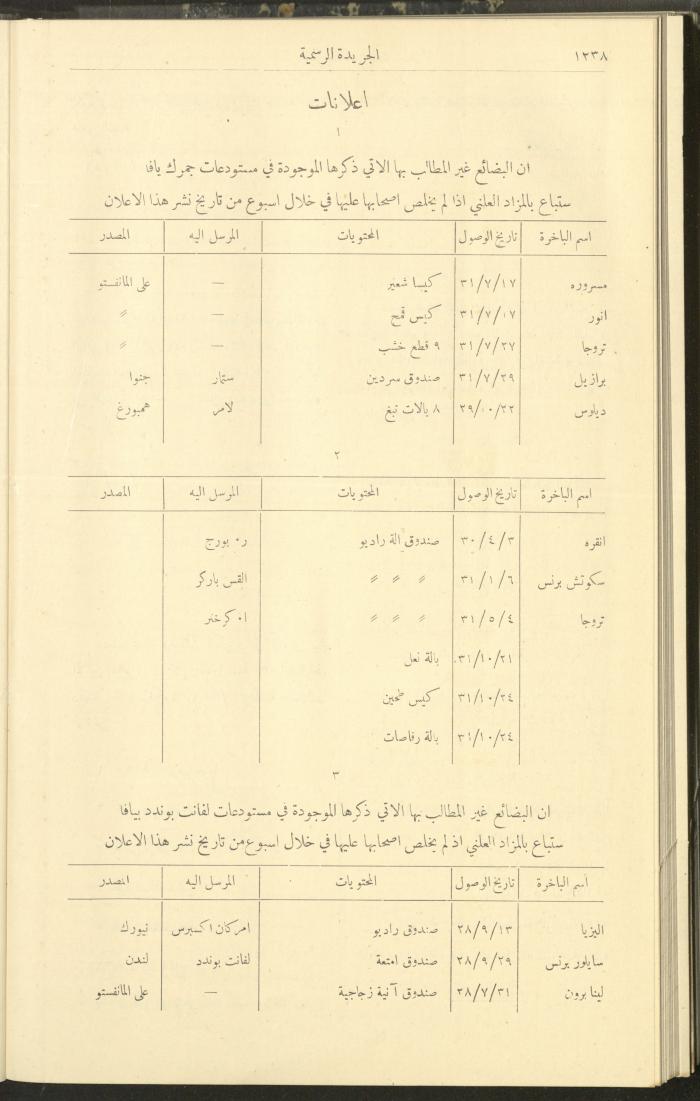 ١٢٣٨ الجريدة الرسمية
اعلانات
١
ان البضائع غير المطالب بها الاتي ذكرها الموجودة في مستودعات جمرك يافا
ستباع بالمزاد العلني اذا لم يخلص اصحابها عليها في خلال اسبوع من تاريخ نشر هذا الاعلان
اسم الباخرة تاريخ الوصول المحتويات المرسل اليه المصدر
مسروره ٣١/٧/١٧ كيسا شعير — على المانفستو
انور ٣١/٧/١٧ كيس قمح —〃
تروجا ٣١/٧/٢٧ ٩ قطع خشب — 〃
برازيل ٣١/٧/٢٩ صندوق سردين ستمار جنوا
ديلوس ٢٩/١٠/٢٢ ٨ بالات تبغ لامر همبورغ
٢
اسم الباخرة تاريخ الوصول المحتويات المرسل اليه المصدر
انقره ٣٠/٤/٣ صندوق الة راديو ر٠ بورج
سكوتش برنس ٣١/١/٦ 〃 〃 〃 القس باركر
تروجا ٣١/٥/٤ 〃 〃 〃 ا٠ كرخنر
٣١/١٠/٢١ بالة نعل
٣١/١٠/٢٤ كيس طحين
٣١/١٠/٢٤ بالة رفاصات
٣
ان البضائع غير المطالب بها الاتي ذكرها الموجودة في مستودعات لفانت بوندد بيافا
ستباع بالمزاد العلني اذ لم يخلص اصحابها عليها في خلال اسبوع من تاريخ نشر هذا الاعلان
اسم الباخرة تاريخ الوصول المحتويات المرسل اليه المصدر
اليزيا ٢٨/٩/١٣ صندوق راديو امركان اكسبرس نيورك
سايلور برنس ٢٨/٩/٢٩ صندوق امتعة لفانت بوندد لندن
لينا برون ٢٨/٧/٣١ صندوق آنية زجاجية — على المانفستو